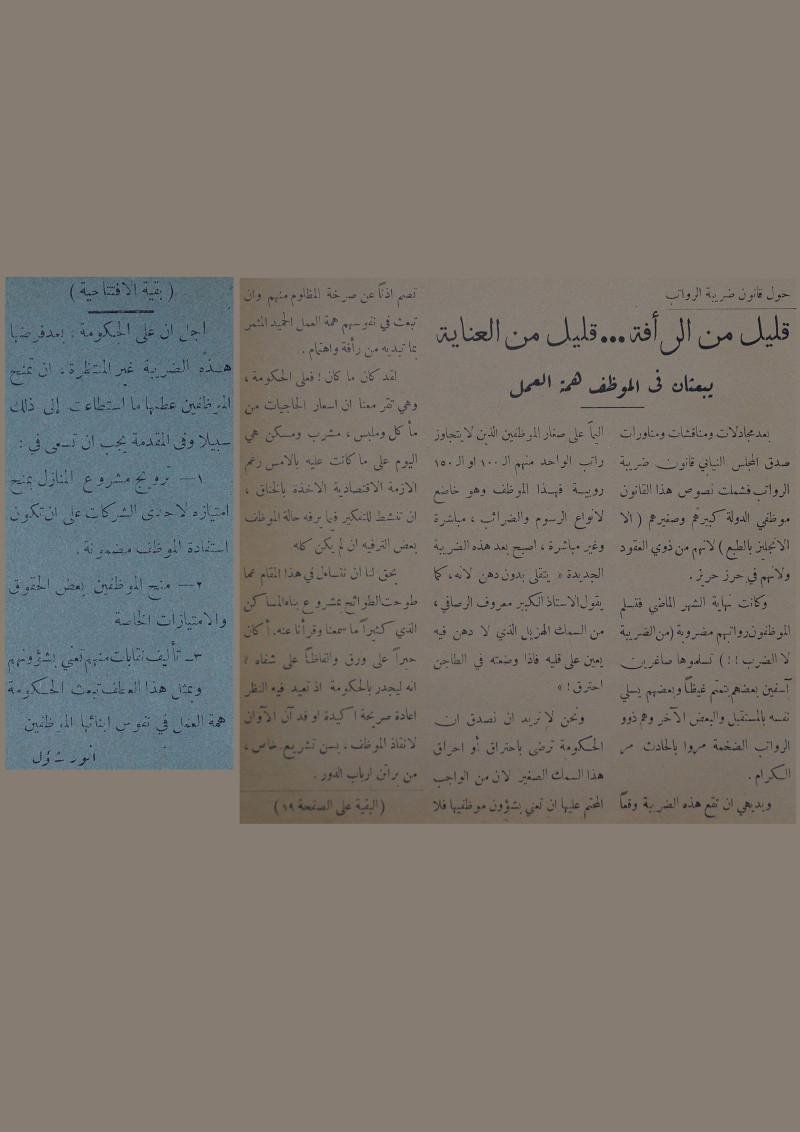 حول قانون ضريبة الرواتب
قليل من الرأفة... قليل من العناية
يبعثان في الموظف همة العمل
بعد مجادلات ومناقشات ومناورات
صدق المجلس النيابي قانون ضريبة
الرواتب فشملت نصوص هذا القانون
موظفي الدولة كبيرهم وصغيرهم ( الا
الانجليز بالطبع ) لانهم من ذوي العقود
ولانهم في حرز حريز .
وكانت نهاية الشهر الماضي فتسلم
الموظفون رواتبهم مضروبة ( من الضريبة
لا الضرب !! ) تسلموها صاغرين
آسفين بعضهم يتمتم غيظاً وبعضهم يسلي
نفسه بالمستقبل والبعض الآخر وهم ذوو
الرواتب الضخمة مروا بالحادث مر
الكرام .
وبديهي ان تقع هذه الضريبة وقعاً
اليماً على صغار الموظفين الذين لا يتجاوز
راتب الواحد منهم الـ ١٠٠ او الـ ١٥٠
روبية فهذا الموظف وهو خاضع
لانواع الرسوم والضرائب ، مباشرة
وغير مباشرة ، اصبح بعد هذه الضريبة
الجديدة « يتقلى بدون دهن لانه ، كما
يقول الاستاذ الكبير معروف الرصافي ،
من السمك الهزيل الذي لا دهن فيه
يعين على قليه فاذا وضعته في الطاجن
احترق ! »
ونحن لا نريد ان نصدق ان
الحكومة ترضى باحتراق أو احراق
هذا السمك الصغير لان من الواجب
المحتم عليها ان تعني بشؤون موظفيها فلا
تصم اذناً عن صرخة المظلوم منهم وان
تبعث في نفوسهم همة العمل الحميد المثمر
بما تبديه من رأفة واهتمام .
لقد كان ما كان ! فعلى الحكومة ،
وهي تقر معنا ان اسعار الحاجيات من
مأكل وملبس ، مشرب ومسكن هي
اليوم على ما كانت عليه بالامس رغم
الازمة الاقتصادية الآخذة بالخناق ،
ان تنشط للتفكير فيما يرفه حالة الموظف
بعض الترفيه ان لم يكن كله
يحق لنا ان نتساءل في هذا المقام عما
طوحت الطوائح بمشروع بناء المساكن
الذي كثيراً ما سمعنا وقرأنا عنه . أكان
حبراً على ورق والفاظاً على شفاه ؟
انه ليجدر بالحكومة اذ تعيد فيه النظر
اعادة صريحة اكيدة او قد آن الآوان
لانقاذ الموظف ، بسن تشريع خاص ،
من براثن ارباب الدور .
( البقية على الصفحة ١٩ )
( بقية الافتتاحية )
اجل ان على الحكومة ، بعد فرضها
هذه الضريبة غير المنتظرة ، ان تمنح
الموظفين عطفها ما استطاعت إلى ذلك
سبيلا وفي المقدمة يجب ان تسعى في :
١ — ترويج مشروع المنازل بمنح
امتيازه لاحدى الشركات على ان تكون
استفادة الموظف مضمونة .
٢ — منح الموظفين بعض الحقوق
والامتيازات الخاصة
٣ — تأليف نقابات منهم تعني بشؤونهم
وبمثل هذا العطف تبعث الحكومة
همة العمل في نفوس ابنائها الموظفين
انور شاؤل